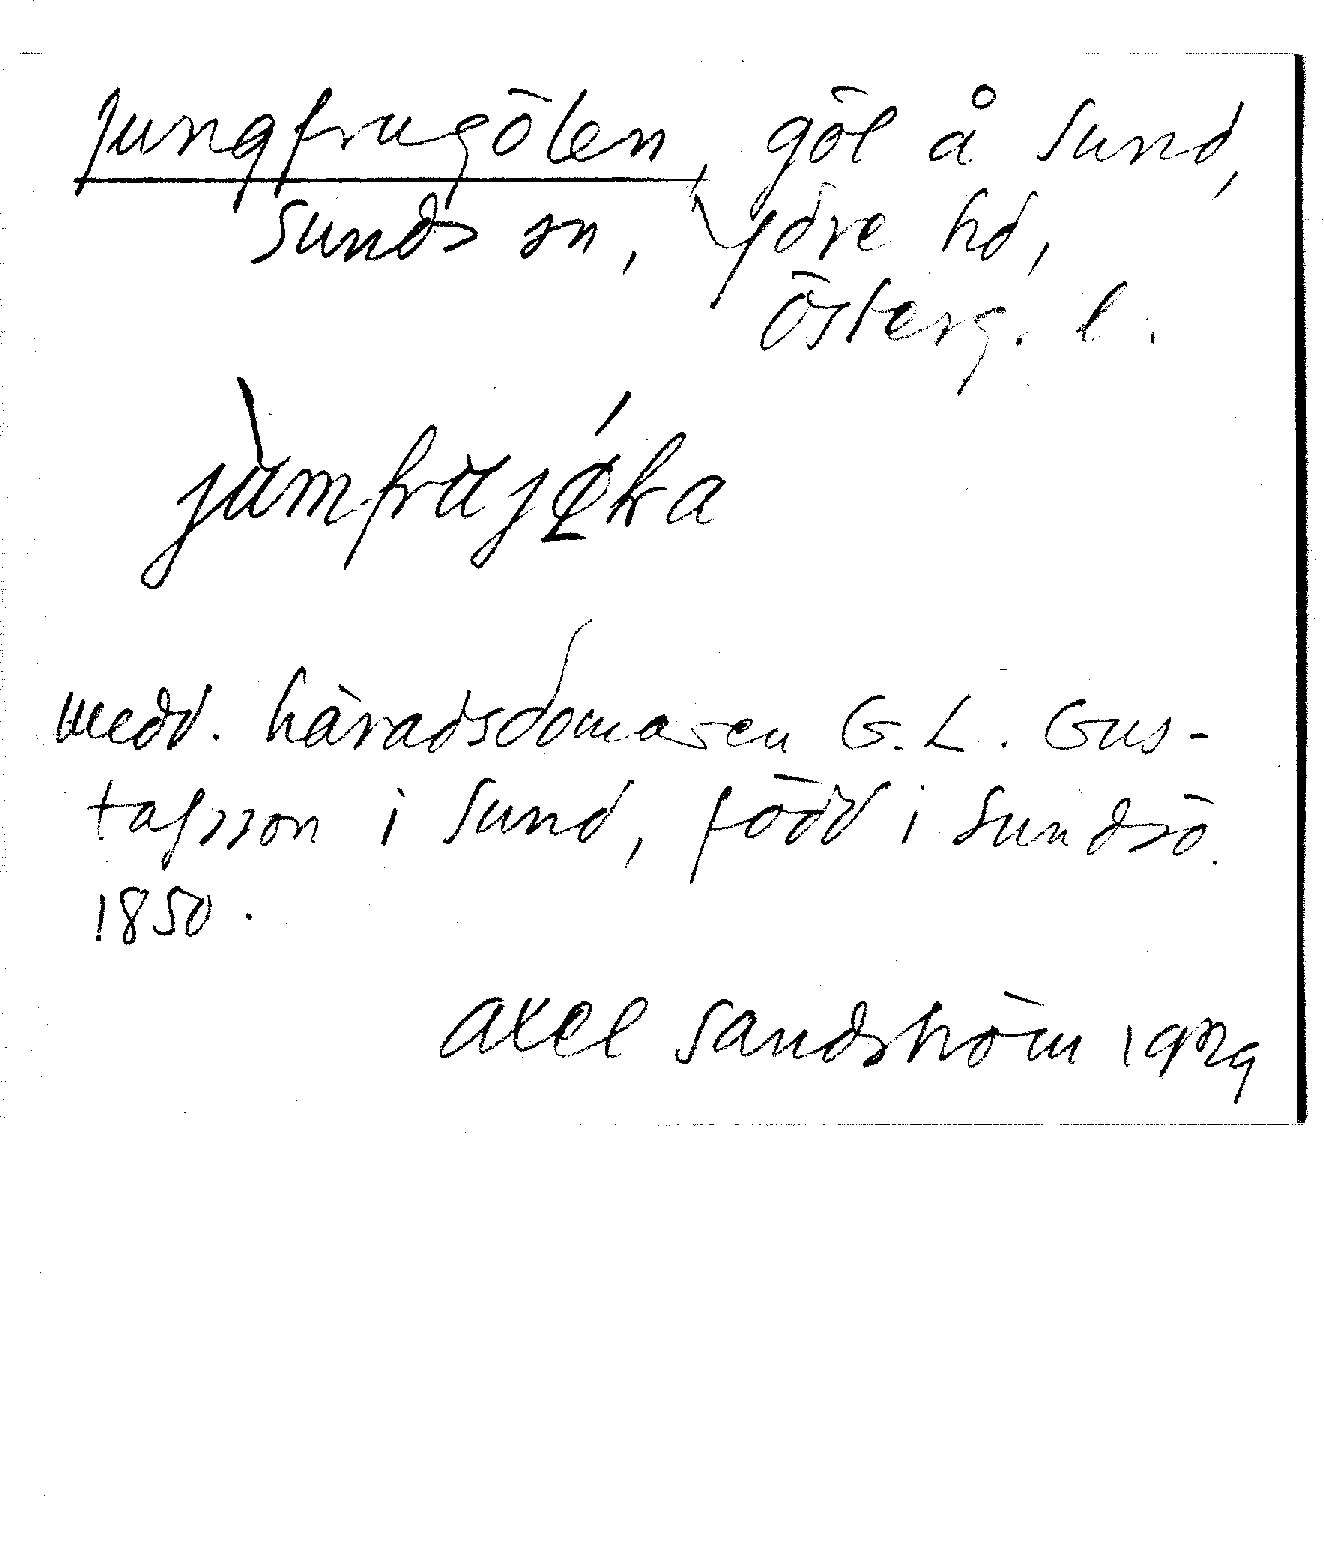 Jungfrugölen, göl å Sund,
Sunds sn, Ydre hd,
Österg. l.
medd. häradsdomaren G. L. Gus-
tafsson i Sund, född i Sunds sn
1850.
Axel Sandström 1929